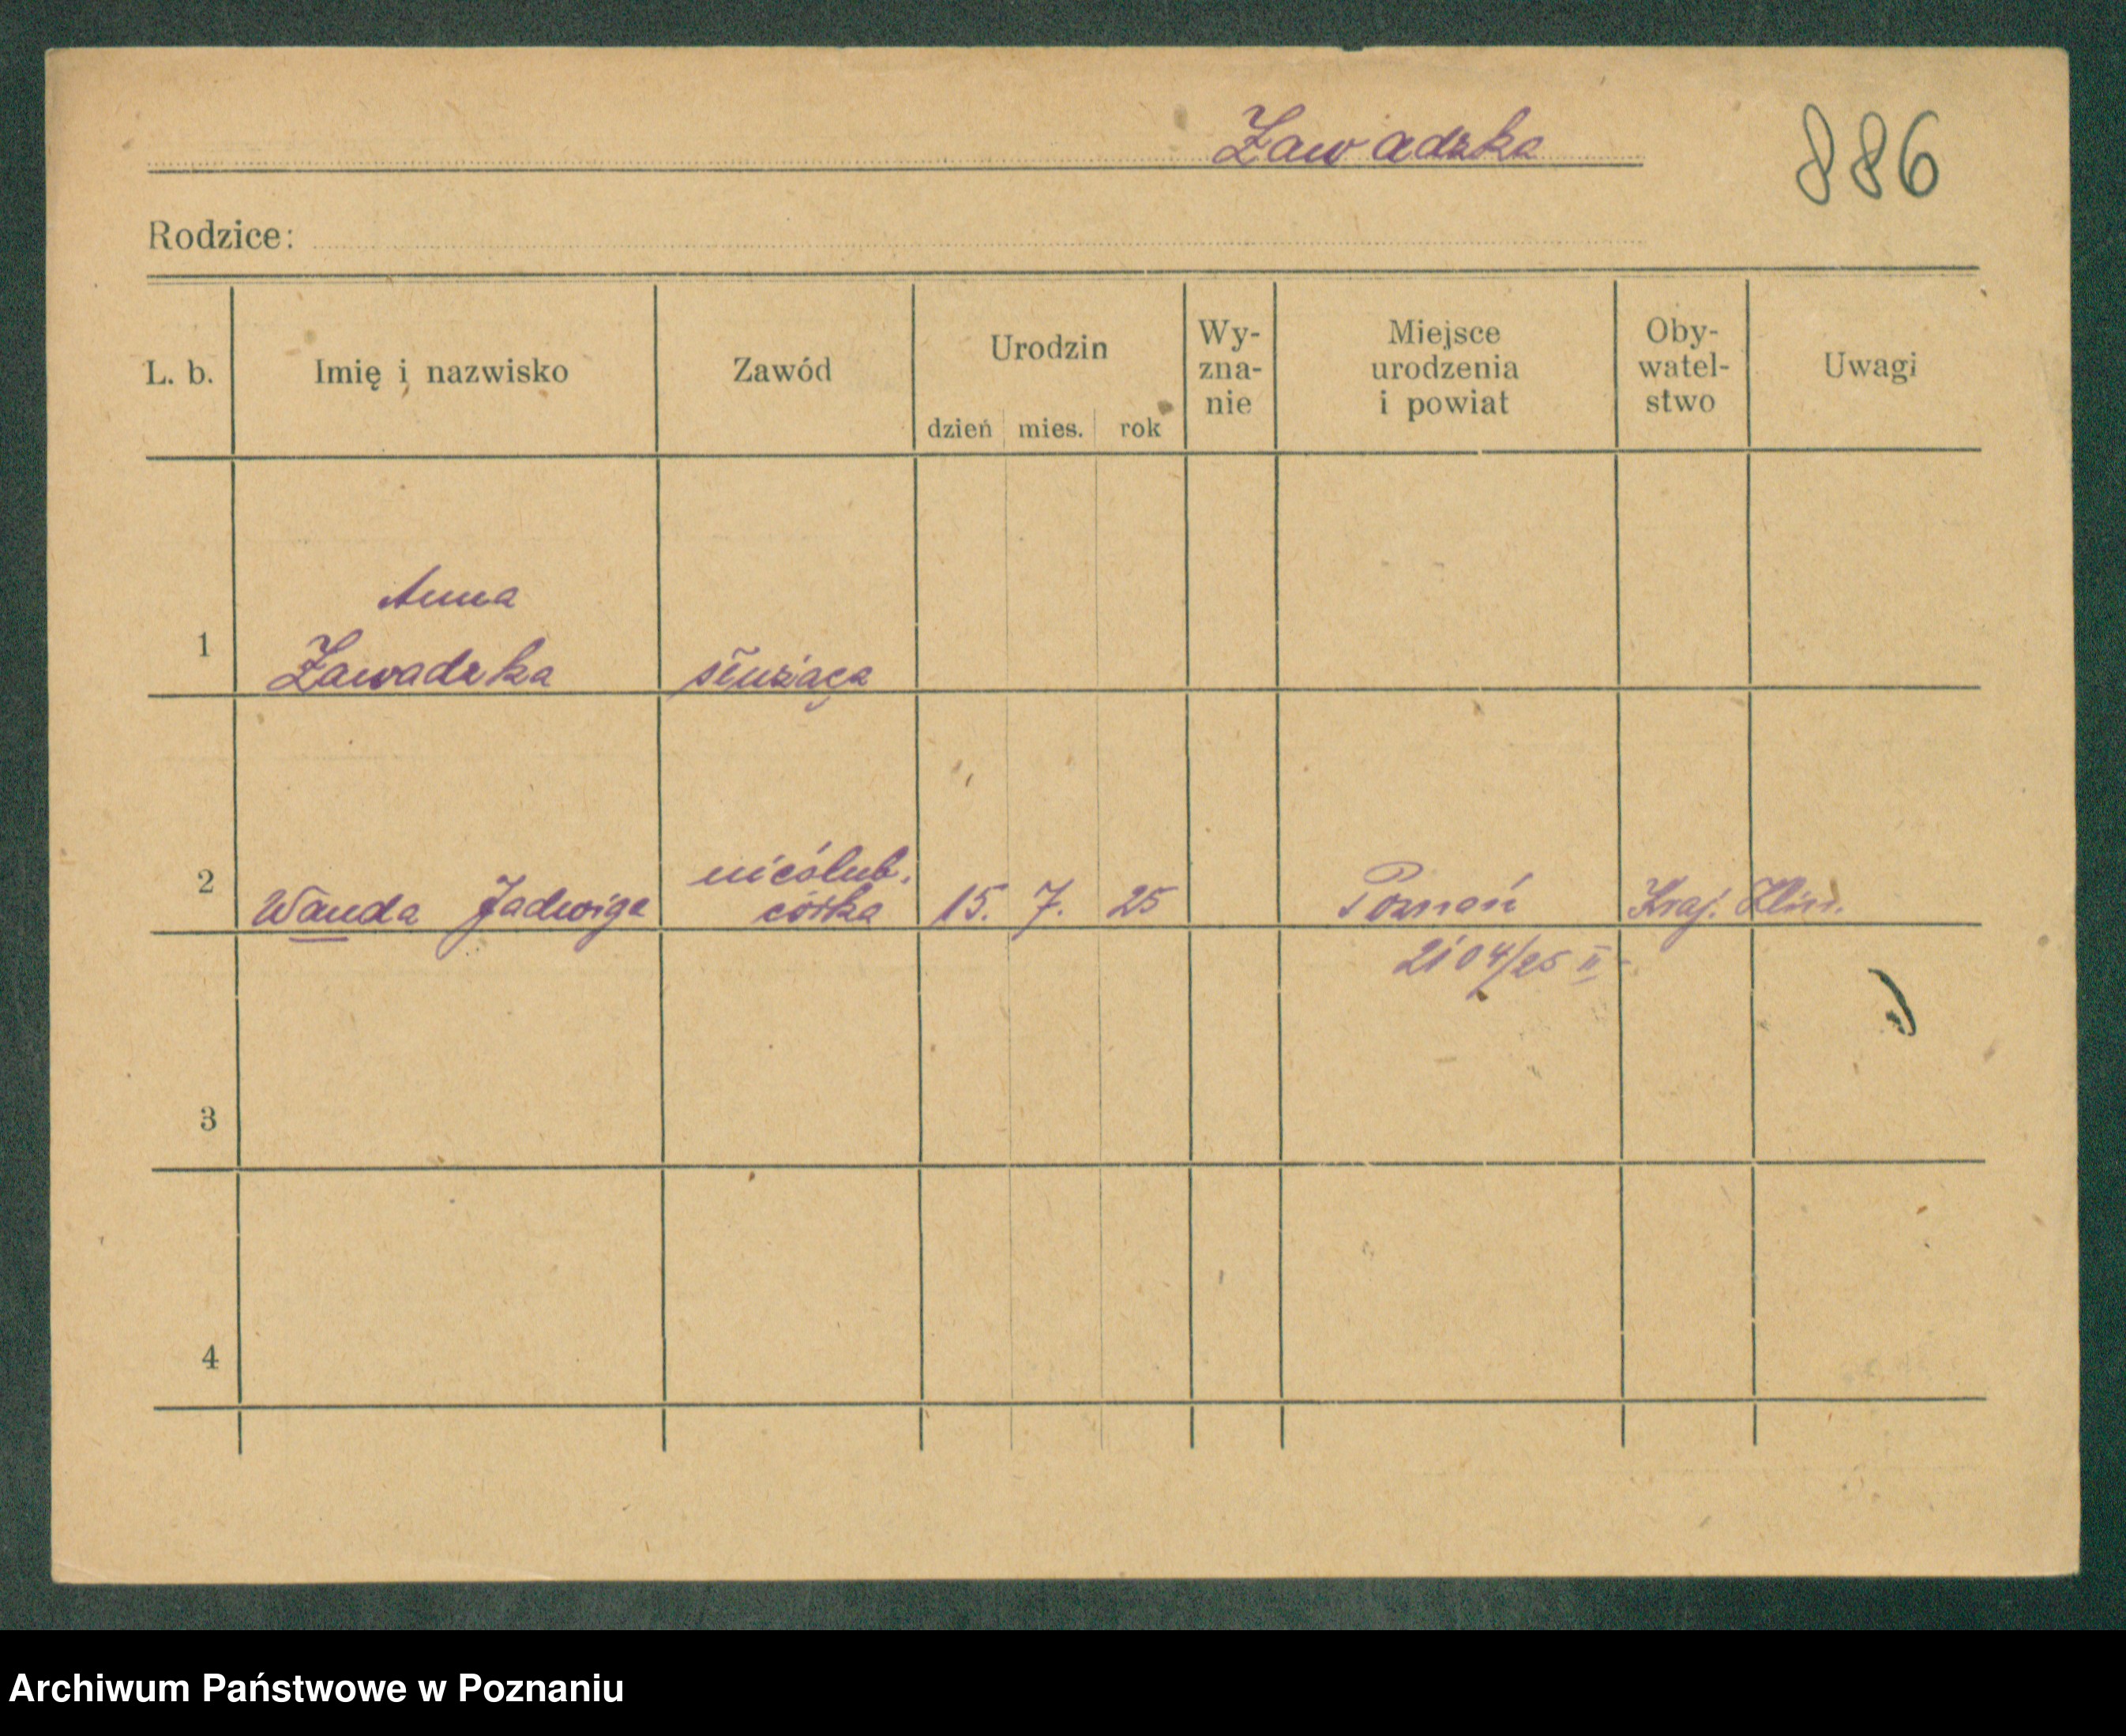 Zawadzka
886
Rodzice:
L. b.
Imię i nazwisko
Zawód
Urodzin
dzień mies. rok
Wy-
zna-
nie
Miejsce
urodzenia
i powiat
Oby-
watel-
stwo
Uwagi
Anna
1 Zawadzka służąca
nieślub.
2 Wanda Jadwiga córka 15. 7. 25 Poznań Kraj. Klin.
2104/25 II
3
4
Archiwum Państwowe w Poznaniu